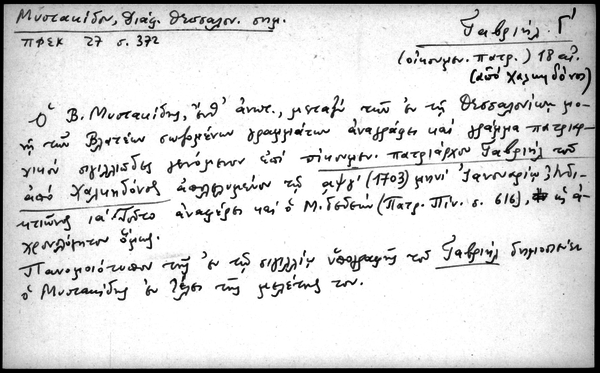 Μυστακίδου, Διάφ. Θεσσαλον. σημ.
ΠΦΕΚ 27 σ. 372
Γαβριήλ Γ΄
(οἰκουμεν. πατρ.) 18 αἰ.
(ἀπό Χαλκηδόνος)
Ὁ Β. Μυστακίδης, ἔνθ' ἀνωτ., μεταξύ τῶν ἐν τῇ Θεσσαλονίκῃ μο-
νῇ τῶν Βλατέων σωζομένων γραμμάτων ἀναγράφει καί γράμμα πατριαρ-
χικόν σιγιλλιῶδες γενόμενον ἐπί οἰκουμεν. πατριάρχου Γαβριήλ τοῦ
ἀπό Χαλκηδόνος ἀπολελυμένον τῷ αψγ΄ (1703) μηνί Ἰανουαρίῳ Ἰνδι-
κτιῶνος ια΄. Τοῦτο ἀναφέρει καί ὁ Μ. Γεδεών (Πατρ. Πιν. σ. 616), ὡς ἀ-
χρονολόγητον ὅμως.
Πανομοιότυπον τῆς ἐν τῷ σιγιλλίῳ ὑπογραφῆς τοῦ Γαβριήλ δημοσιεύει
ὁ Μυστακίδης ἐν τέλει τῆς μελέτης του.